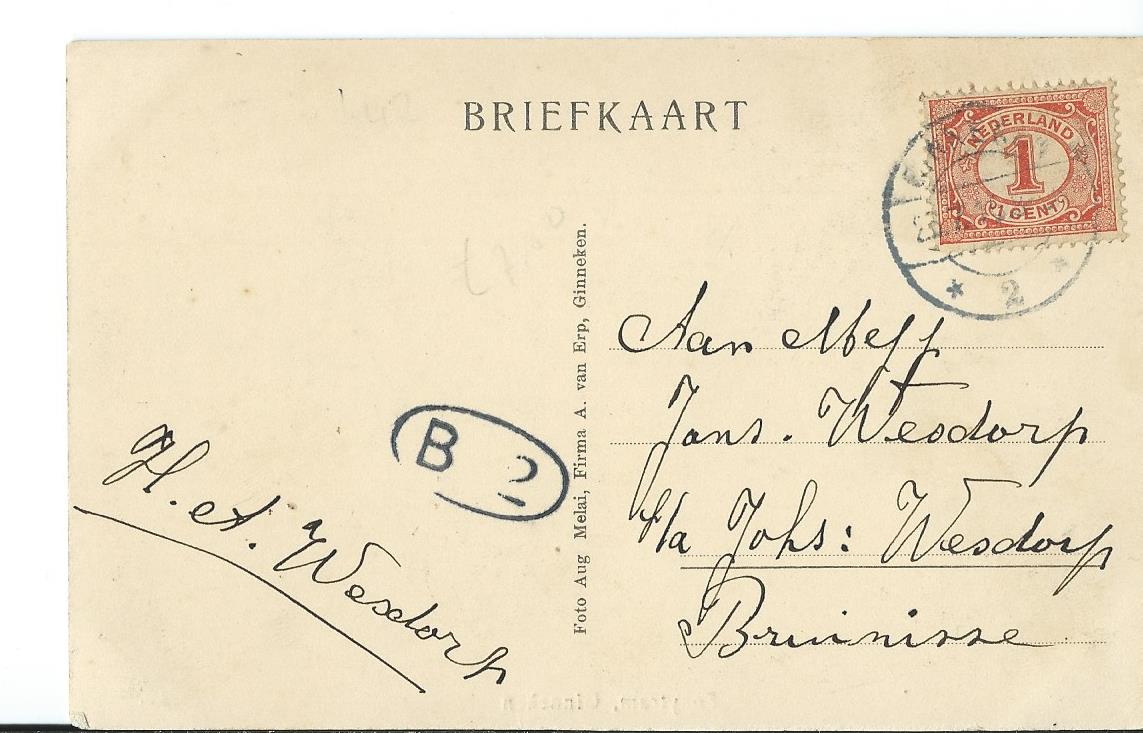 BRIEFKAART
NEDERLAND
1
1 CENT
2
Foto Aug Melai, Firma A. van Erp, Ginneken.
Aan Mejf
Jans. Wesdorp
p/a Johs: Wesdorp
Bruinisse
B 2
H. A. Wesdorp